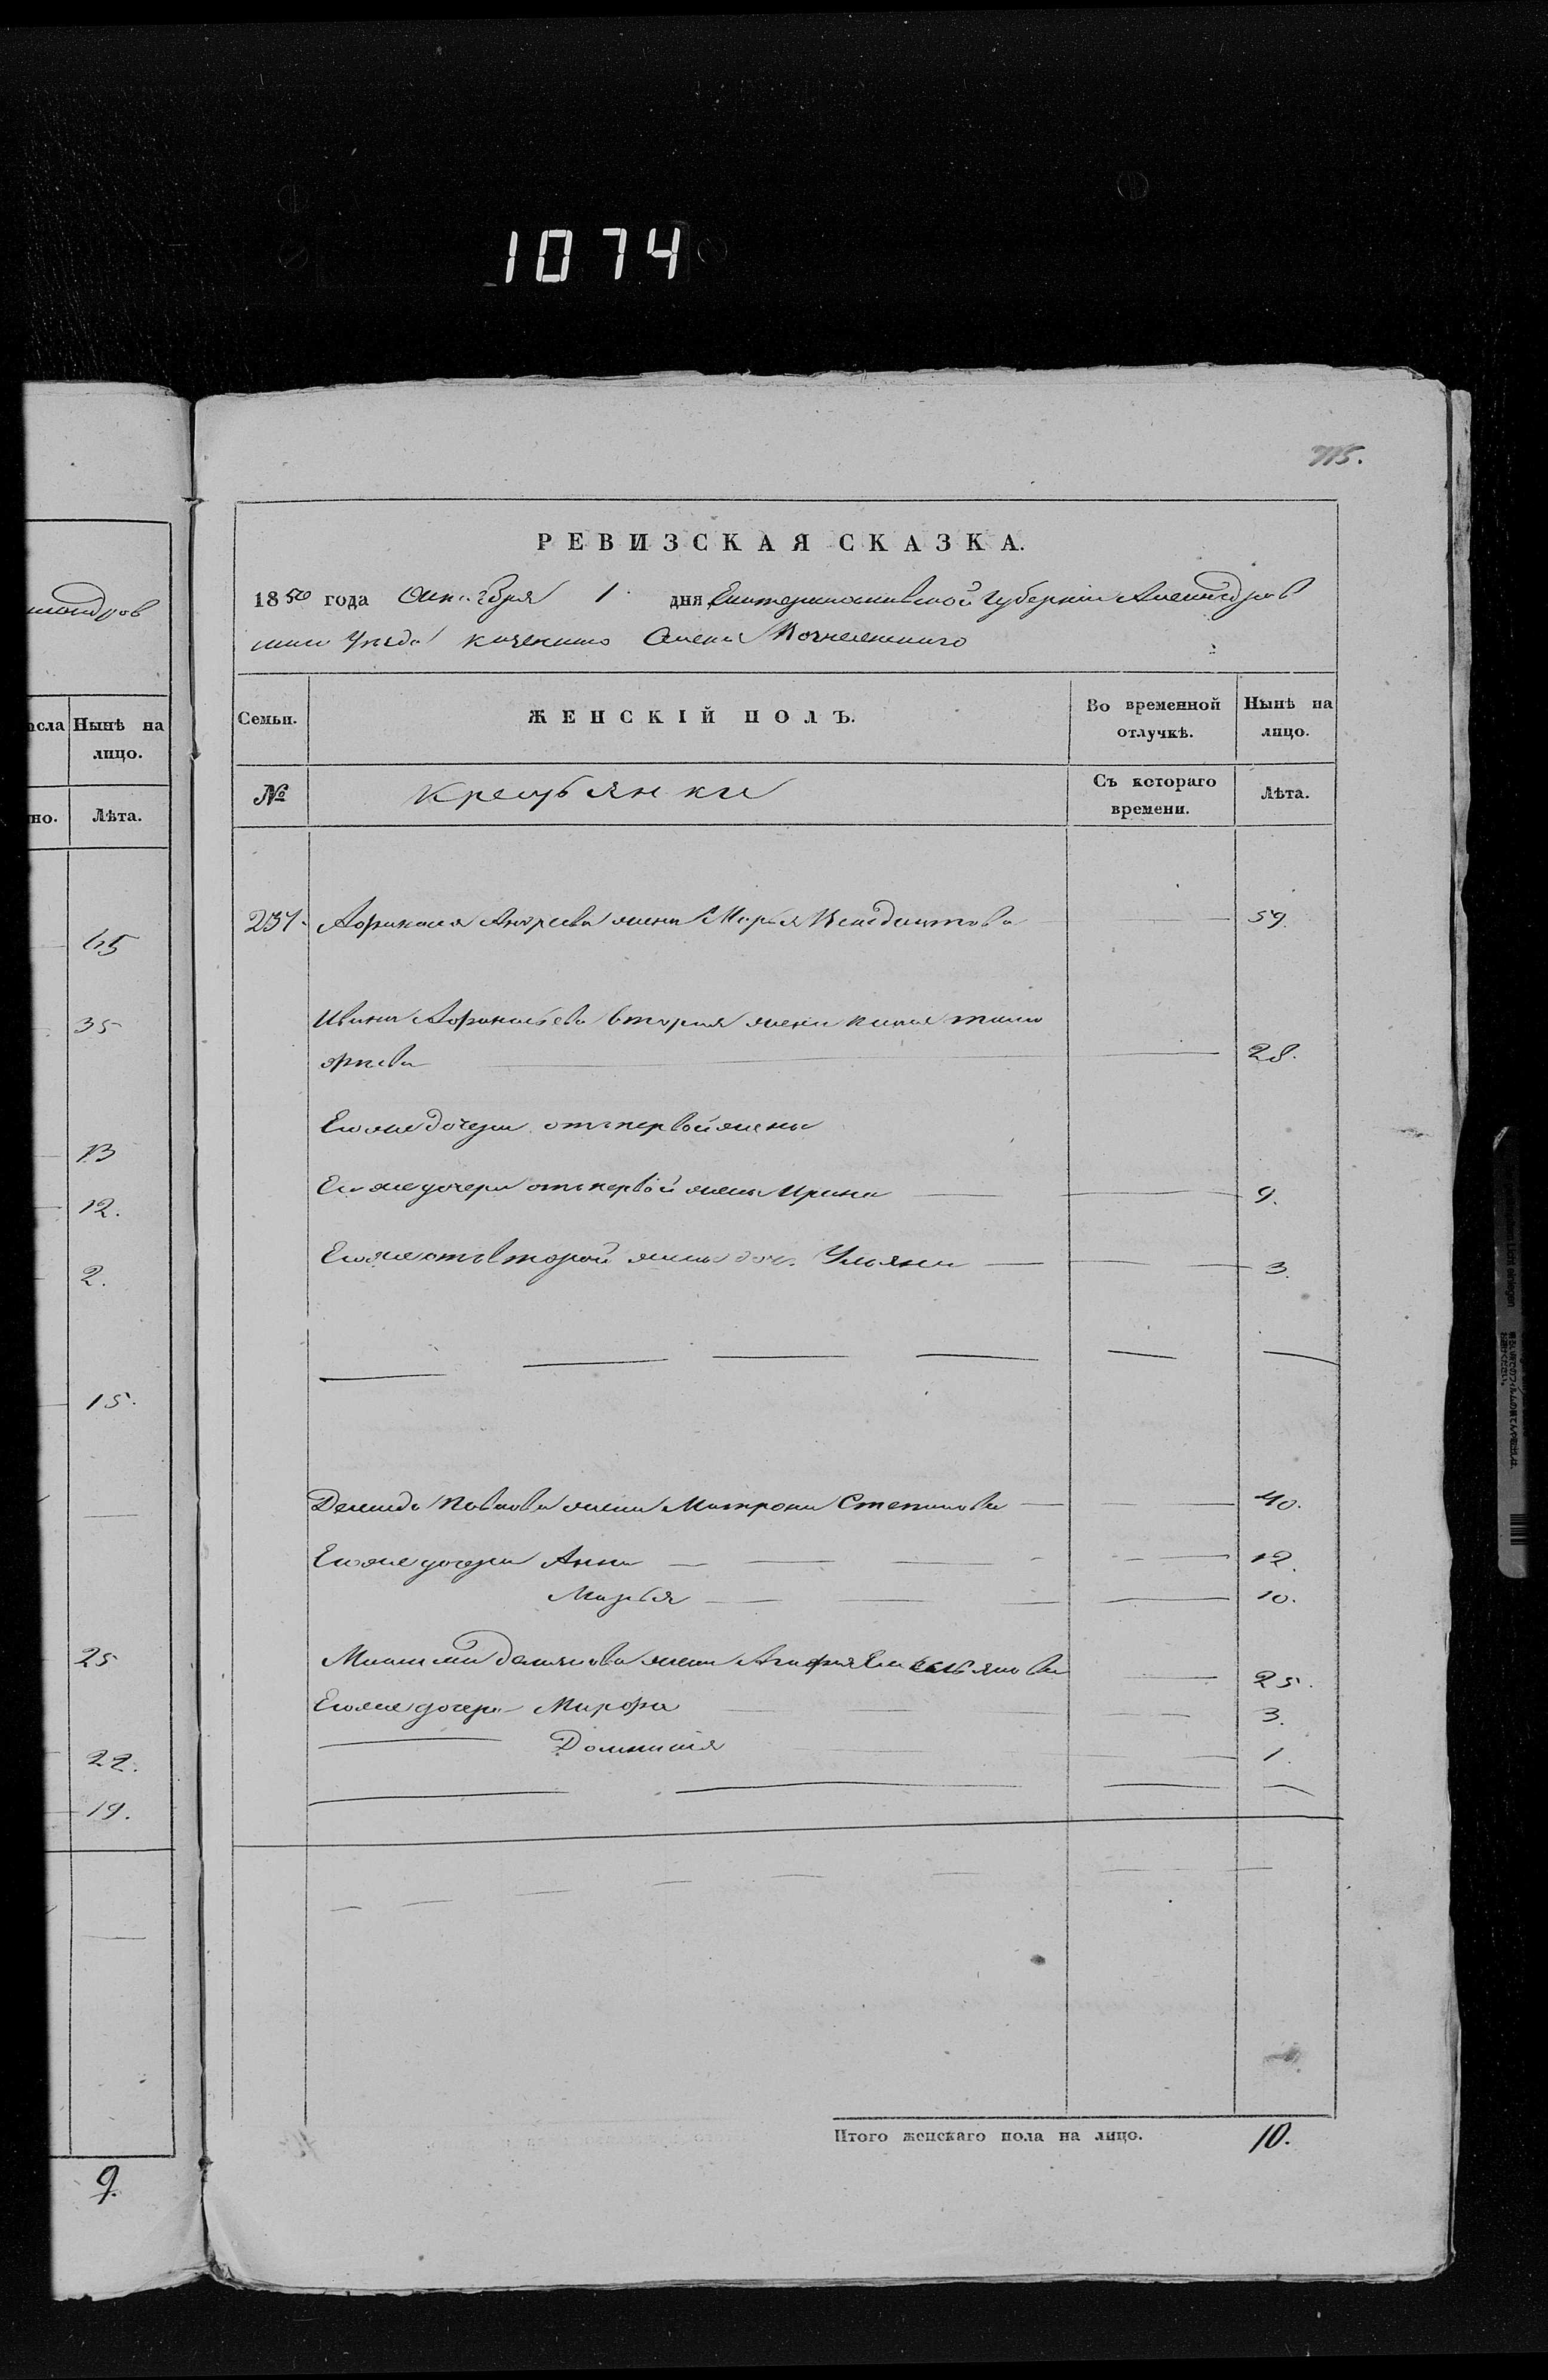 1074
715.
РЕВИЗСКАЯ СКАЗКА.
1850 года Октября 1 дня Екатеринославской Губерніи Александров
скаго Уезда казеннаго Села Вознесенскаго
Семьи.
ЖЕНСКІЙ ПОЛЪ.
Во временной отлучкѣ.
Нынѣ на лицо.
№
Крестьянки
Съ котораго времени.
Лѣта.
237. Афанасия Андреева жена Марья Венедиктова 59.
Ивана Афанасьева вторая жена
28.
Его же дочери отъ первой жены
Его же дочери отъ первой жены Ирина 9.
Его же отъ второй жены доч. Ульяна 3.
Демида Павлова жена Матрона Степанова 40.
Его же дочери Анна 12.
Марья 10.
Демидова жена Агафия Емельянова 25.
Его же дочери Марфа 3.
Домникия 1.
Итого женскаго пола на лицо. 10.
андров
исла
Нынѣ на лицо.
но.
Лѣта.
65
35
13
12.
2.
15.
25
22.
19.
9.